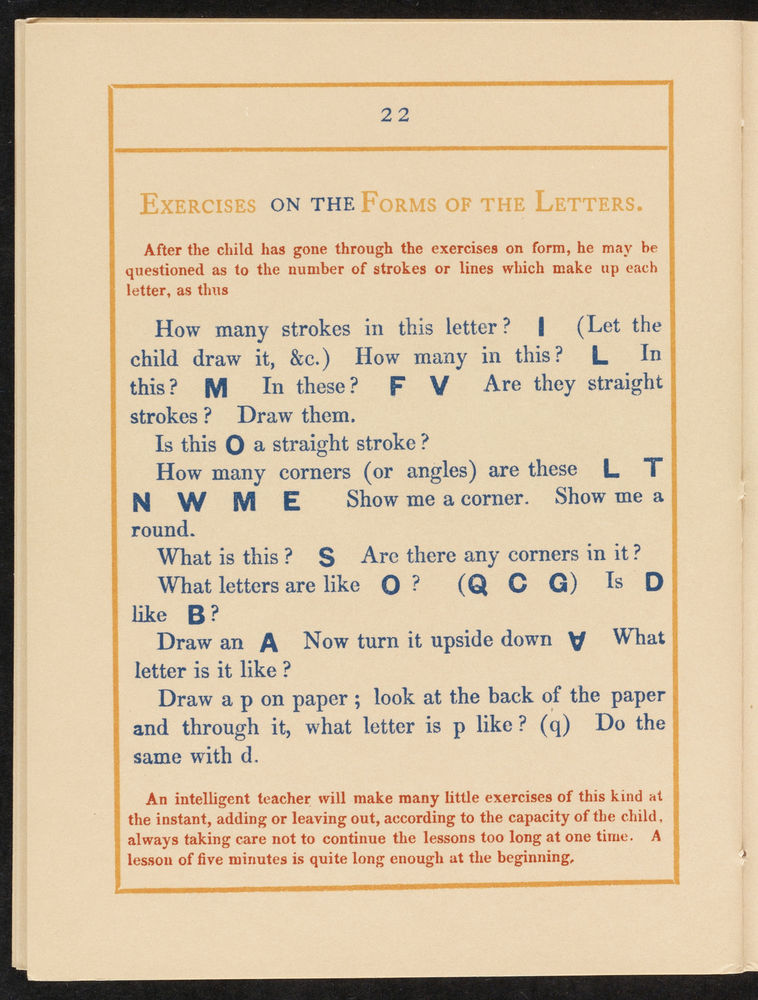 22
EXERCISES ON THE FORMS OF THE LETTERS.
After the child has gone through the exercises on form, he may be
questioned as to the number of strokes or lines which make up each
letter, as thus
How many strokes in this letter? I (Let the
child draw it, &c.) How many in this? L In
this? M In these? F V Are they straight
strokes? Draw them.
Is this O a straight stroke?
How many corners (or angles) are these L T
N W M E Show me a corner. Show me a
round.
What is this? S Are there any corners in it?
What letters are like O? (Q C G) Is D
like B?
Draw an A Now turn it upside down ∀ What
letter is it like?
Draw a p on paper; look at the back of the paper
and through it, what letter is p like? (q) Do the
same with d.
An intelligent teacher will make many little exercises of this kind at
the instant, adding or leaving out, according to the capacity of the child,
always taking care not to continue the lessons too long at one time. A
lesson of five minutes is quite long enough at the beginning.